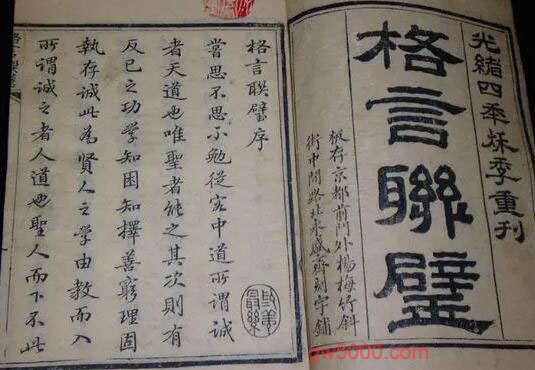 光緒四秊秋季重刊
格言聯璧
板存京都前門外楊梅竹斜
街中間路北永盛齋刻字鋪
格言聯璧序
嘗思不思不勉從容中道所謂誠
者天道也唯聖者能之其次則有
反己之功學知困知擇善窮理固
執存誠此為賢人之學由教而入
所謂誠之者人道也聖人而下不此
gw5000.com